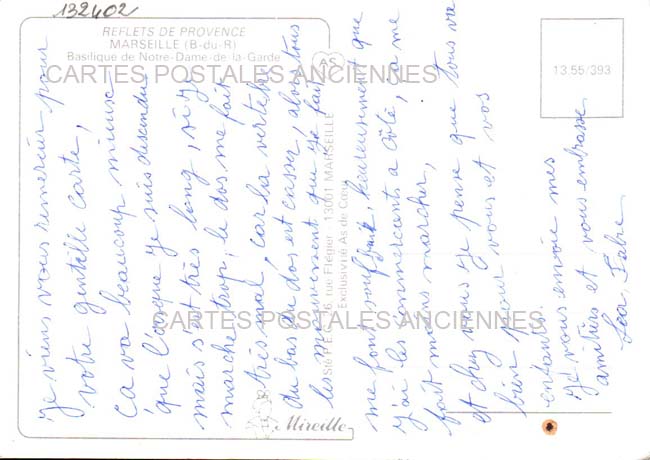 132402
REFLETS DE PROVENCE
MARSEILLE (B-du-R)
Basilique de Notre-Dame-de-la-Garde
CARTES POSTALES ANCIENNES
AS
13.55/393
je viens vous remercier pour
votre gentille carte,
ça va beaucoup mieux
que l'époque je suis descendue
mais s'est très long, si je
marche trop, le dos me fait
très mal, car la vertebre
du bas du dos est casser, alors tous
les mouvement que je fait
me font souffrir, heureusement que
j'ai les commercients a côté, ça me
fait moins marcher,
et chez vous je pense que tous va
bien pour vous et vos
enfants.
Je vous envoie mes
amitiers et vous embrasse
Léa Fabre
16, rue Flégier - 13001 MARSEILLE
Exclusivité As de Coeur
CARTES POSTALES ANCIENNES
Mireille